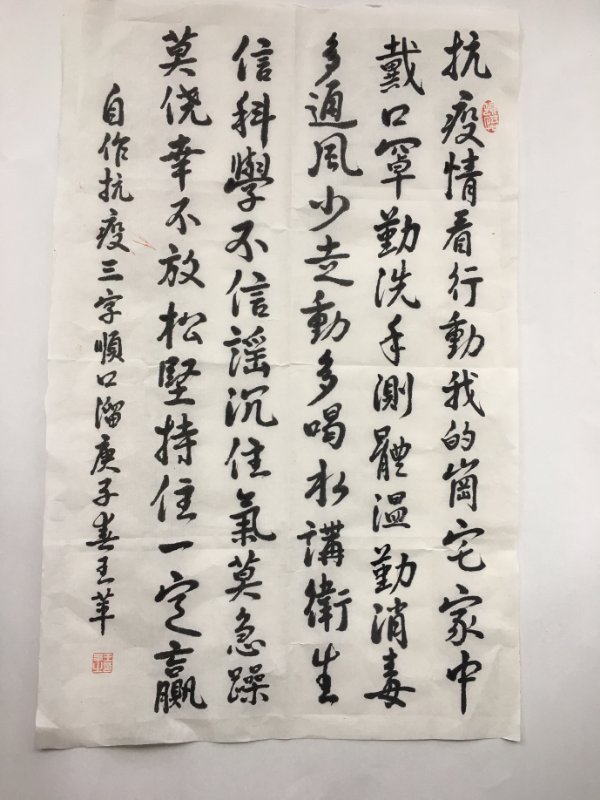 抗疫情看行動我的崗宅家中
戴口罩勤洗手測體溫勤消毒
多通風少走動多喝水講衛生
信科學不信謠沉住氣莫急躁
莫侥幸不放松堅持住一定贏
自作抗疫三字順口溜庚子春王苹